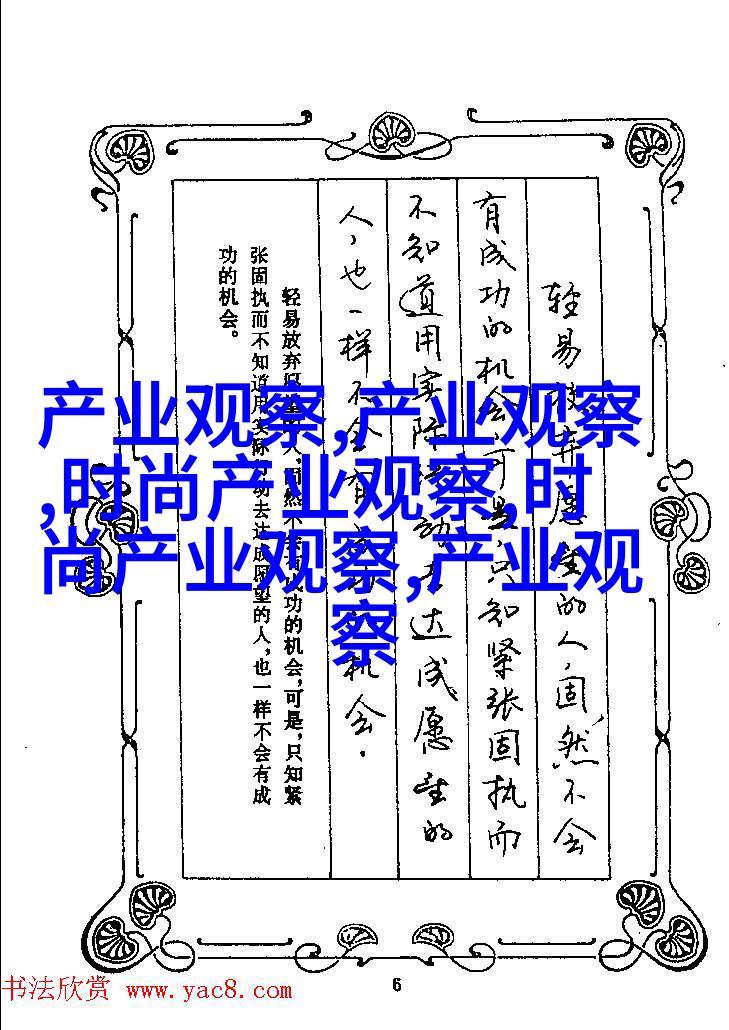 轻易放弃愿望的人,固然不会
有成功的机会,可是,只知紧张固执而
不知道用实际行动去达成愿望的
人,也一样不会有成功的机会.
轻易放弃愿望的人,固然不会有成功的机会,可是,只知紧
张固执而不知道用实际行动去达成愿望的人,也一样不会有成
功的机会。
产业观察,产业观察
,时尚产业观察,时
尚产业观察,产业观
察
书法欣赏 www.yac8.com
6